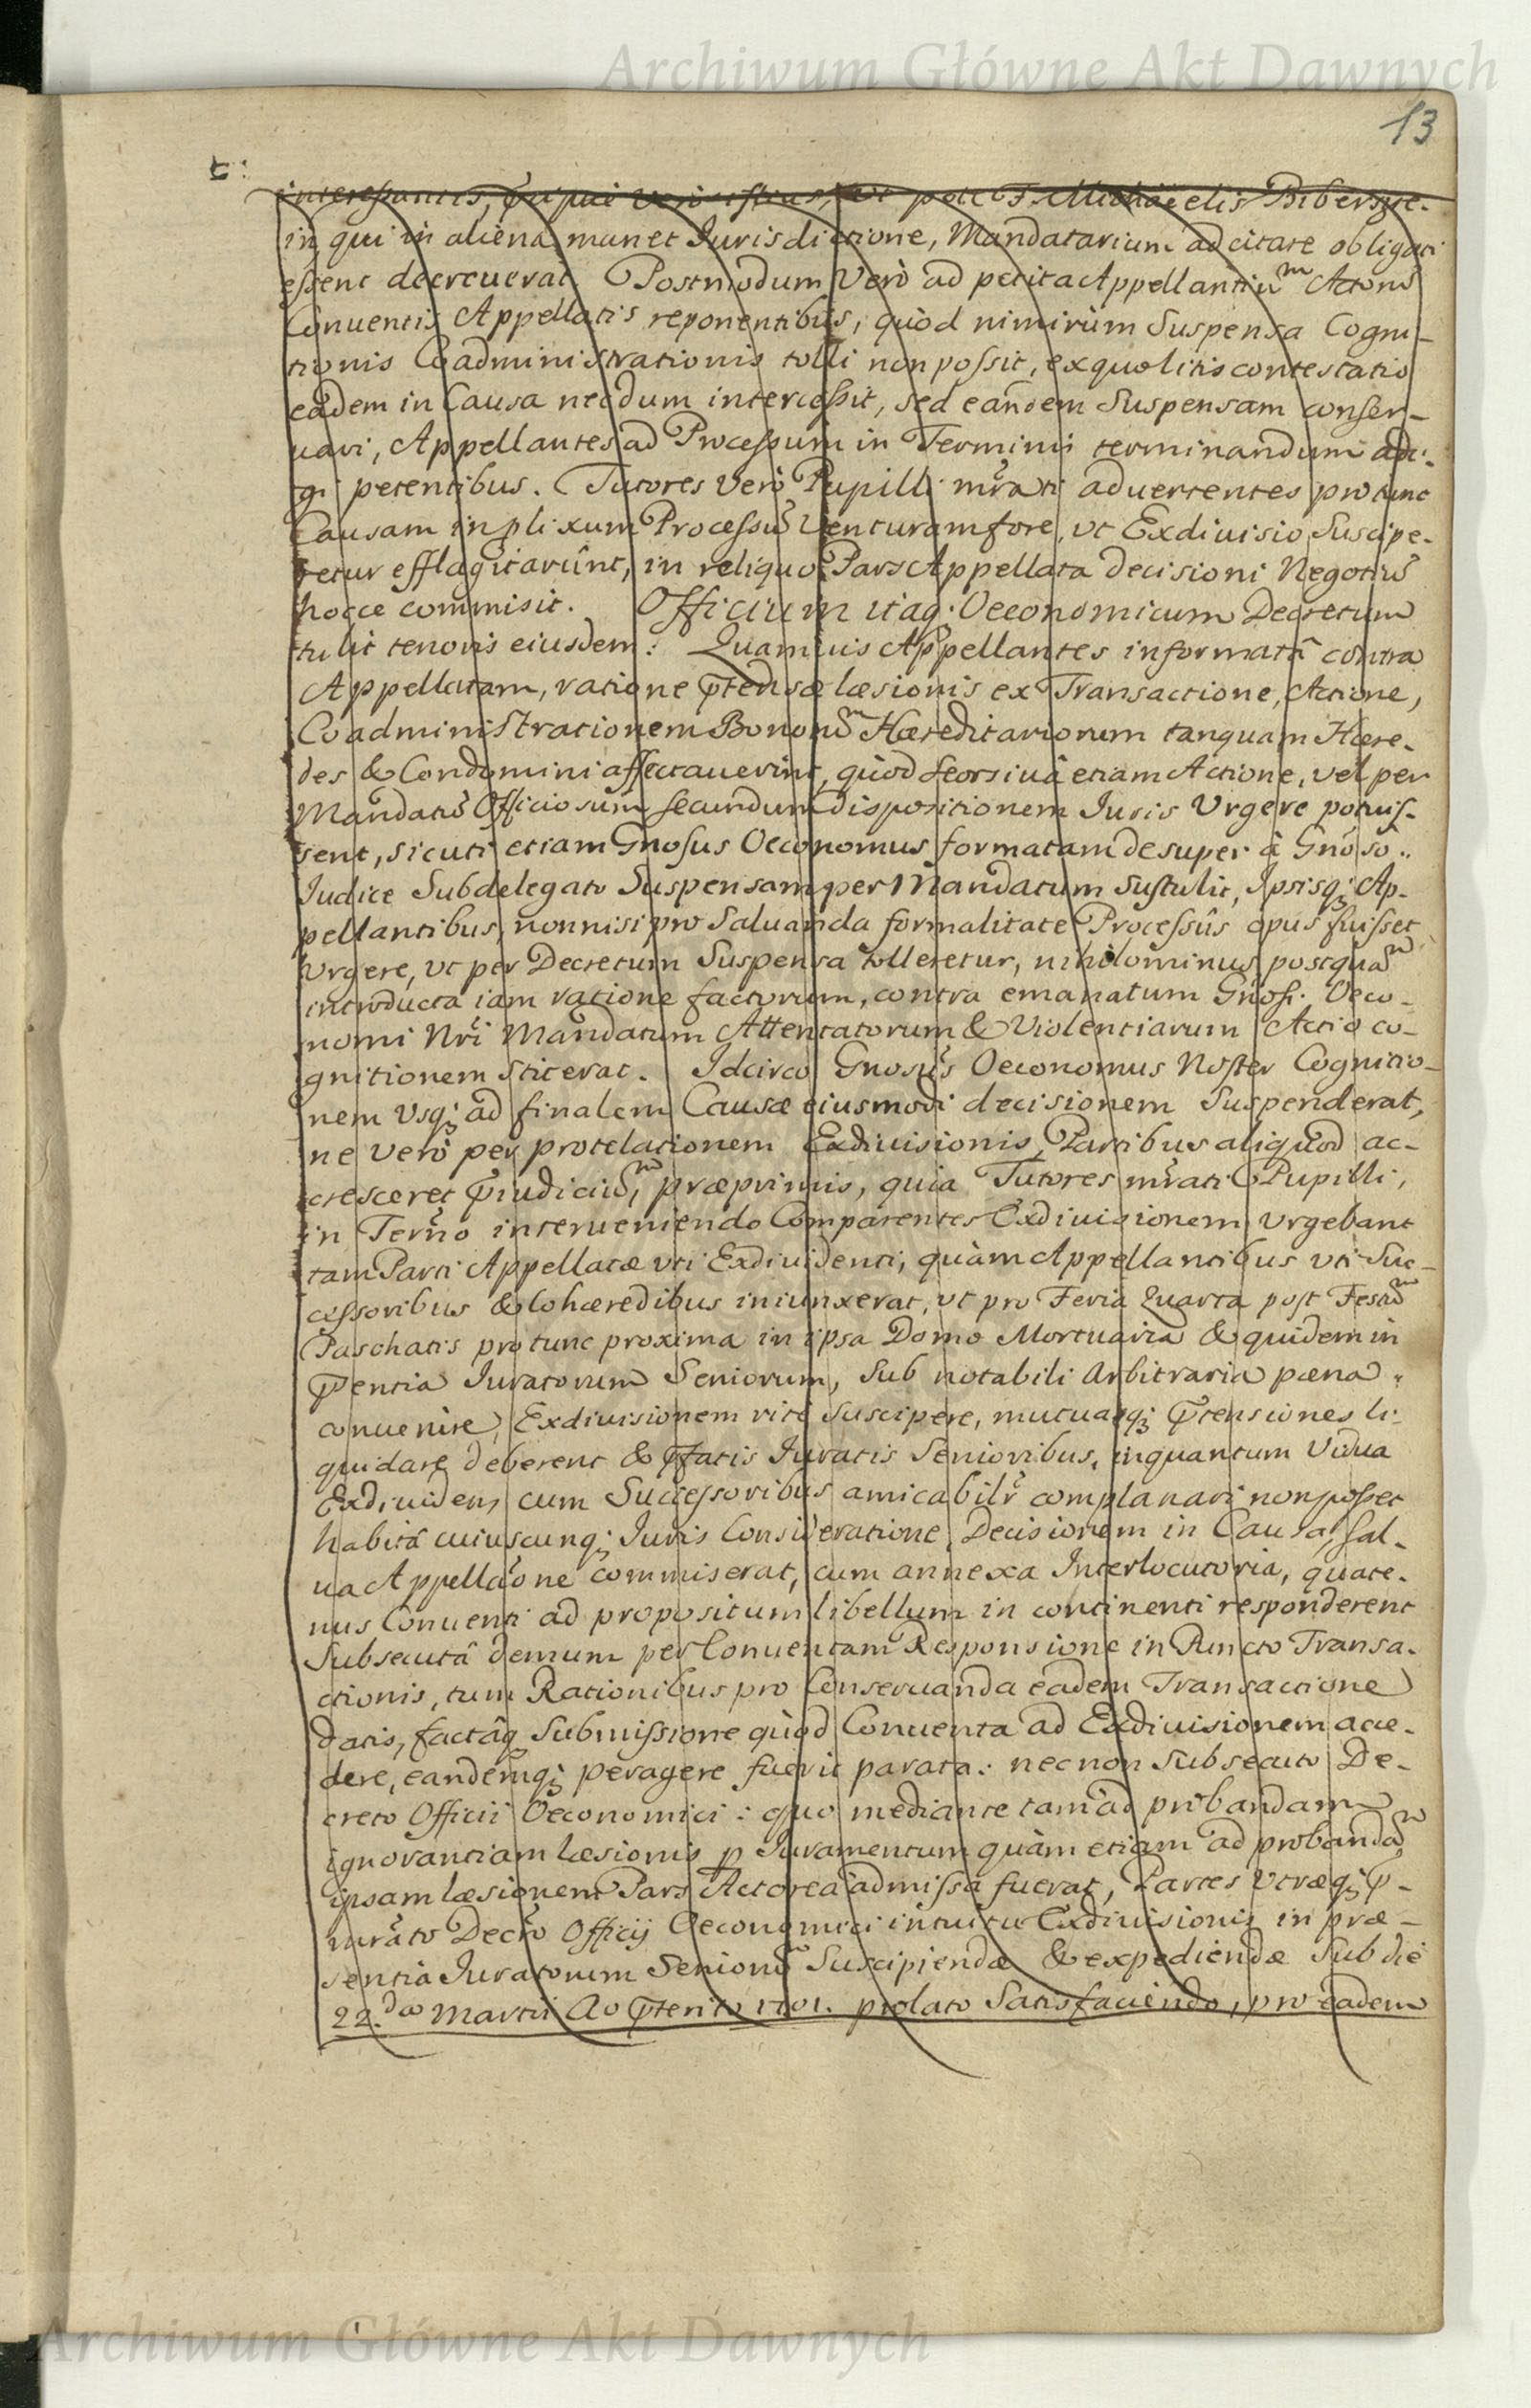 Archiwum Główne Akt Dawnych
13
interessantis, qui vero istius, ut pote F. Michaelis Bibersze-
in, qui in aliena manet Jurisdictione, Mandatarium adcitare obligati
essent decreuerat. Postmodum Verò ad petita Appellantiũ Actorũ
Conuentis Appellatis reponentibus, quòd nimirùm Suspensa Cogni-
tionis Coadministrationis tolli non possit, ex quo litis contestatio
eâdem in Causa necdum intercessit, sed eandem Suspensam conser-
uari, Appellantes ad Processum in Termini terminandum adi-
gi petentibus. Tutores Verò Pupilli mrãti aduertentes pro tunc
Causam in plixum Processũ Venturam fore, vt Exdiuisio Suscipe-
retur efflagitarûnt, in reliquo Pars Appellata decisioni Negotiũ
hocce commisit. Officium itaq; Oeconomicum Decretum
tulit tenoris eiusdem: Quamuis Appellantes informatâ contra
Appellatam, ratione p̃tensæ læsionis ex Transactione, Actione,
Coadministrationem Bonorũ Hæreditariorum tanquam Hære-
des & Condomini affectauerint, quòd seorsiuâ etiam Actione, vel per
Mandatũ Officiosum secundum dispositionem Juris Vrgere potuis-
sent, sicuti etiam Gnosus Oeconomus formatam desuper à Gnoso
Judice Subdelegato Suspensam per Mandatum Sustulit, Ipsisq; Ap-
pellantibus, nonnisi pro Saluanda formalitate Processûs opus fuisset
Vrgere, vt per Decretum Suspensa tolleretur, nihilominus postquã
introducta iam ratione factorum, contra emanatum Gnosi. Oeco-
nomi Nri Mandatum Attentatorum & Violentiarum Actio co-
gnitionem sticerat. Idcirco Gnosus Oeconomus Noster Cognitio-
nem Vsq; ad finalem Causæ eiusmodi decisionem Suspenderat,
ne verò per protelationem Exdiuisionis, Partibus aliquod ac-
cresceret p̃iudiciũ, præprimis, quia Tutores mrãti Pupilli,
in Terño interueniendo Comparentes Exdiuisionem Vrgebant
tam Parti Appellatæ vti Exdiuidenti, quàm Appellantibus vti Suc-
cessoribus & Cohæredibus iniunxerat, vt pro Feria Quarta post Festũ
Paschatis pro tunc proxima in ipsa Domo Mortuaria & quidem in
p̃sentia Iuratorum Seniorum, Sub notabili Arbitraria pæna
conuenire, Exdiuisionem ritè Suscipere, mutuasq; p̃tensiones li-
quidare deberent & p̃fatis Iuratis Senioribus, inquantum Vidua
Exdiuidens cum Successoribus amicabilr̃ complanari non posset
habitâ cuiuscunq; Juris Consideratione, Decisionem in Causa, sal-
ua Appellaõne commiserat, cum annexa Interlocutoria, quate-
nus Conuenti ad propositum libellum in continenti responderent
Subsecutâ demum per Conuentam Responsione in Puncto Transa-
ctionis, tum Rationibus pro Conseruanda eadem Transactione
datis, factâq; Submissione quòd Conuenta ad Exdiuisionem acce-
dere, eandemq; peragere fuerit parata: nec non Subsecuto De-
creto Officii Oeconomici: quo mediante tam ad probandam
ignorantiam læsionis p Iuramentum quàm etiam ad probandã
ipsam læsionem Pars Actorea admissa fuerat, Partes Vtræq; p̃-
mrãto Decr̃to Officij Oeconomici intuitu Exdiuisionis in præ-
sentia Iuratorum Seniorũ Suscipiendæ & expediendæ Sub die
22.da Martii Ao p̃terito 1701. prolato Satisfaciendo, pro eadem
Archiwum Główne Akt Dawnych